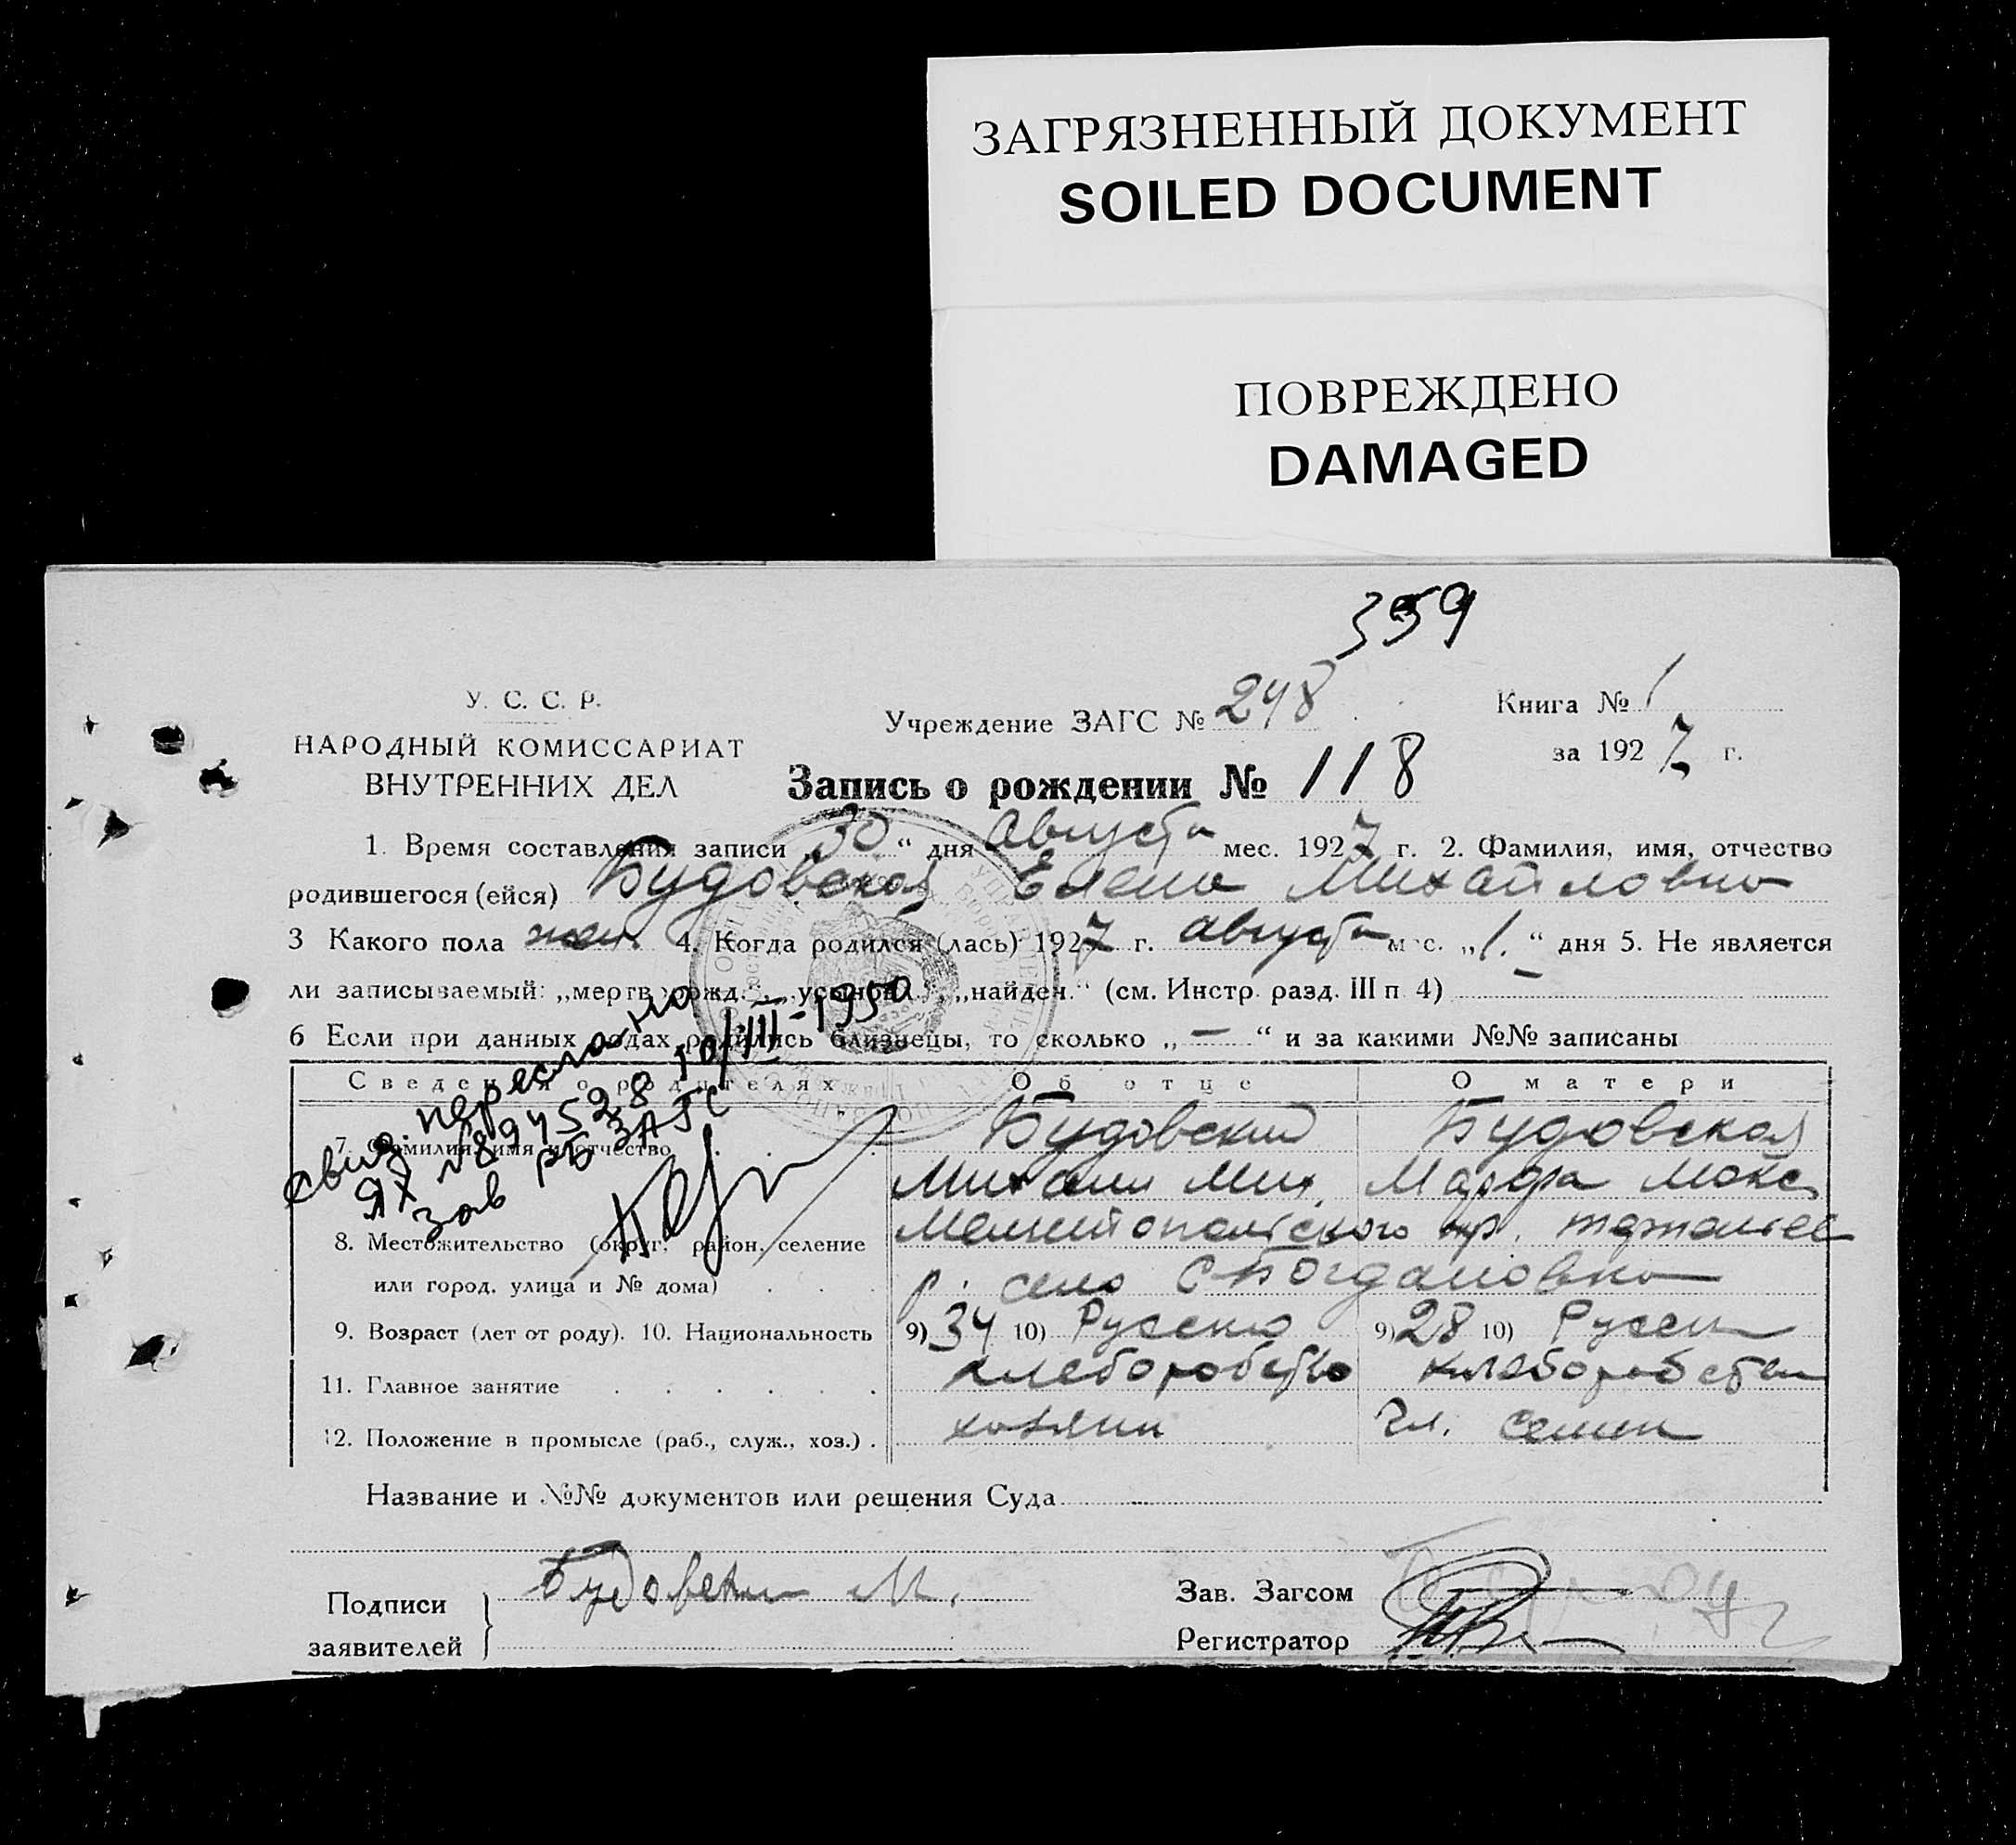 ЗАГРЯЗНЕННЫЙ ДОКУМЕНТ
SOILED DOCUMENT
ПОВРЕЖДЕНО
DAMAGED
359
У. С. С. Р.
НАРОДНЫЙ КОМИССАРИАТ
ВНУТРЕННИХ ДЕЛ
Учреждение ЗАГС № 248
Книга № 1
за 1927 г.
Запись о рождении № 118
1. Время составления записи „30“ дня Августа мес. 1927 г. 2. Фамилия, имя, отчество
родившегося (ейся) Будовская Елена Михайловна
3 Какого пола жен. 4. Когда родился (лась) 1927 г. августа мес. „1.“ дня 5. Не является
ли записываемый: „мертворожд.“, „усыновл.“, „найден.“ (см. Инстр. разд. III п 4)
6 Если при данных родах родились близнецы, то сколько „—“ и за какими №№ записаны
Сведения о родителях Об отце О матери
7. Фамилия, имя и отчество Будовский Будовская
Михаил Мих. Марфа Макс
8. Местожительство (округ, район, селение Мелитопольского окр.
или город, улица и № дома) р. село Богдановка
9. Возраст (лет от роду). 10. Национальность 9) 34 10) Русский 9) 28 10) Русск
11. Главное занятие хлеборобство хлеборобство
12. Положение в промысле (раб., служ., хоз.) . хозяин чл. семьи
свид. переслано
ЯХ №894528 10/III-1950
зав РБ ЗАГС
Название и №№ документов или решения Суда
Подписи
заявителей
Будовский М.
Зав. Загсом
Регистратор